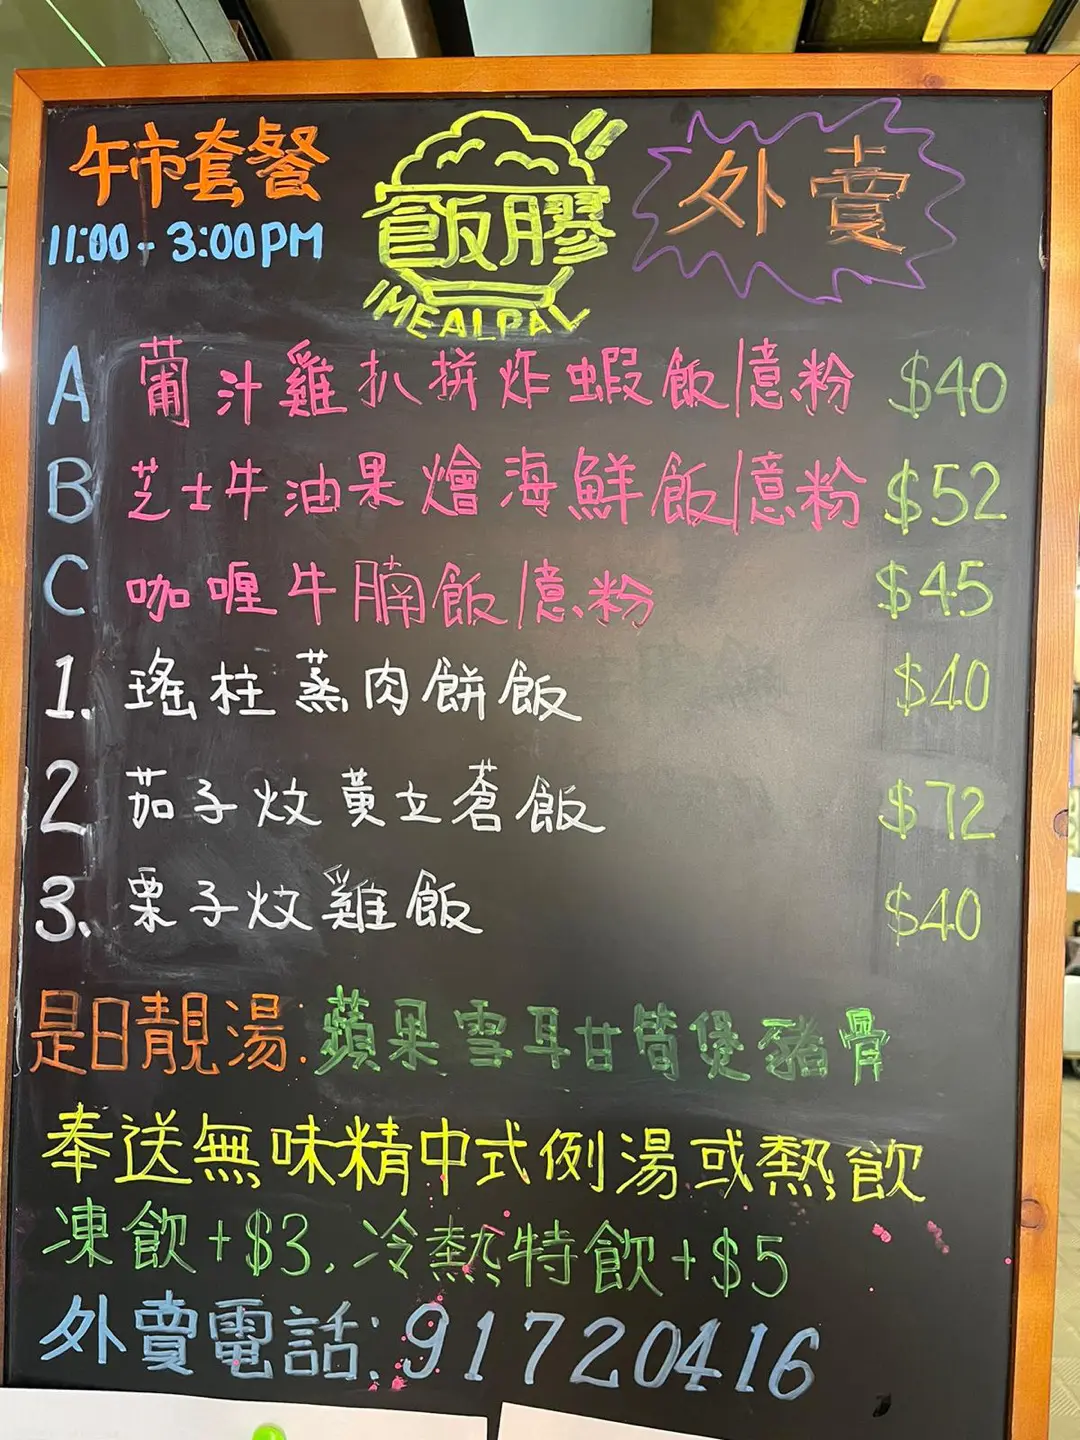 午市套餐
11:00 - 3:00PM
飯膠
MEALPAL
外賣
A 葡汁雞扒拼炸蝦飯/意粉 $40
B 芝士牛油果燴海鮮飯/意粉 $52
C 咖喱牛腩飯/意粉 $45
1. 瑤柱蒸肉餅飯 $40
2 茄子炆黃立蒼飯 $72
3. 栗子炆雞飯 $40
是日靚湯: 蘋果雪耳甘筍煲豬骨
奉送無味精中式例湯或熱飲
凍飲+$3, 冷熱特飲+$5
外賣電話: 91720416